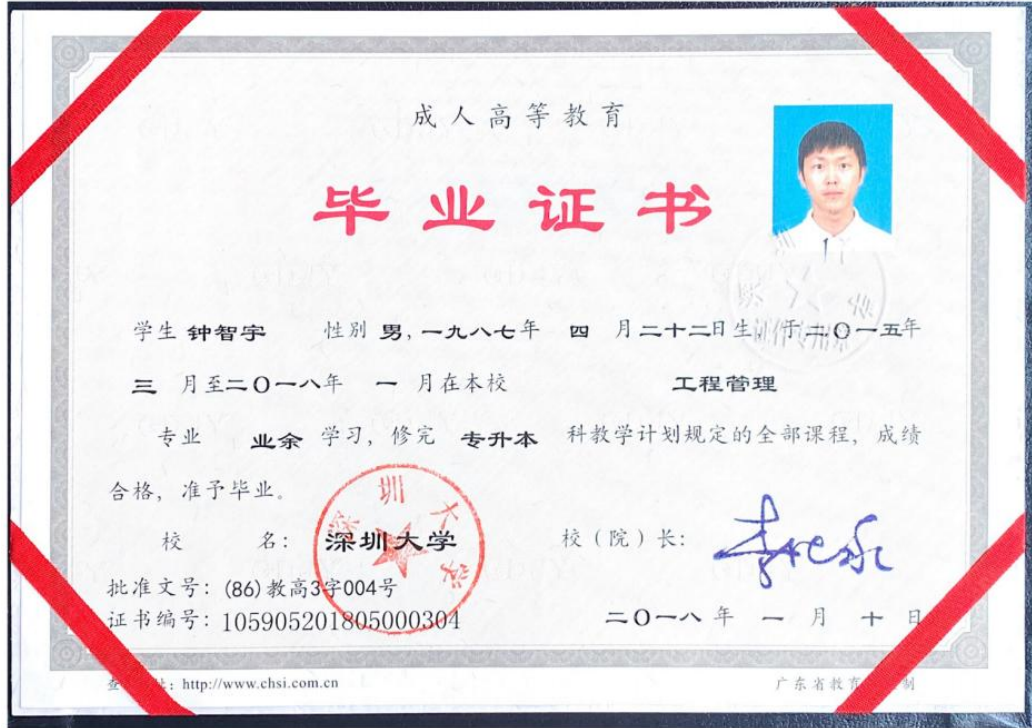 成人高等教育
毕业证书
学生 钟智宇 性别 男,一九八七年 四 月二十二日生,于二〇一五年
三 月至二〇一八年 一 月在本校 工程管理
专业 业余 学习,修完 专升本 科教学计划规定的全部课程,成绩
合格,准予毕业。
深圳大学
校 名: 深圳大学 校(院)长:
批准文号:(86)教高3字004号
证书编号:105905201805000304
二〇一八 年 一 月 十 日
http://www.chsi.com.cn
广东省教育
制